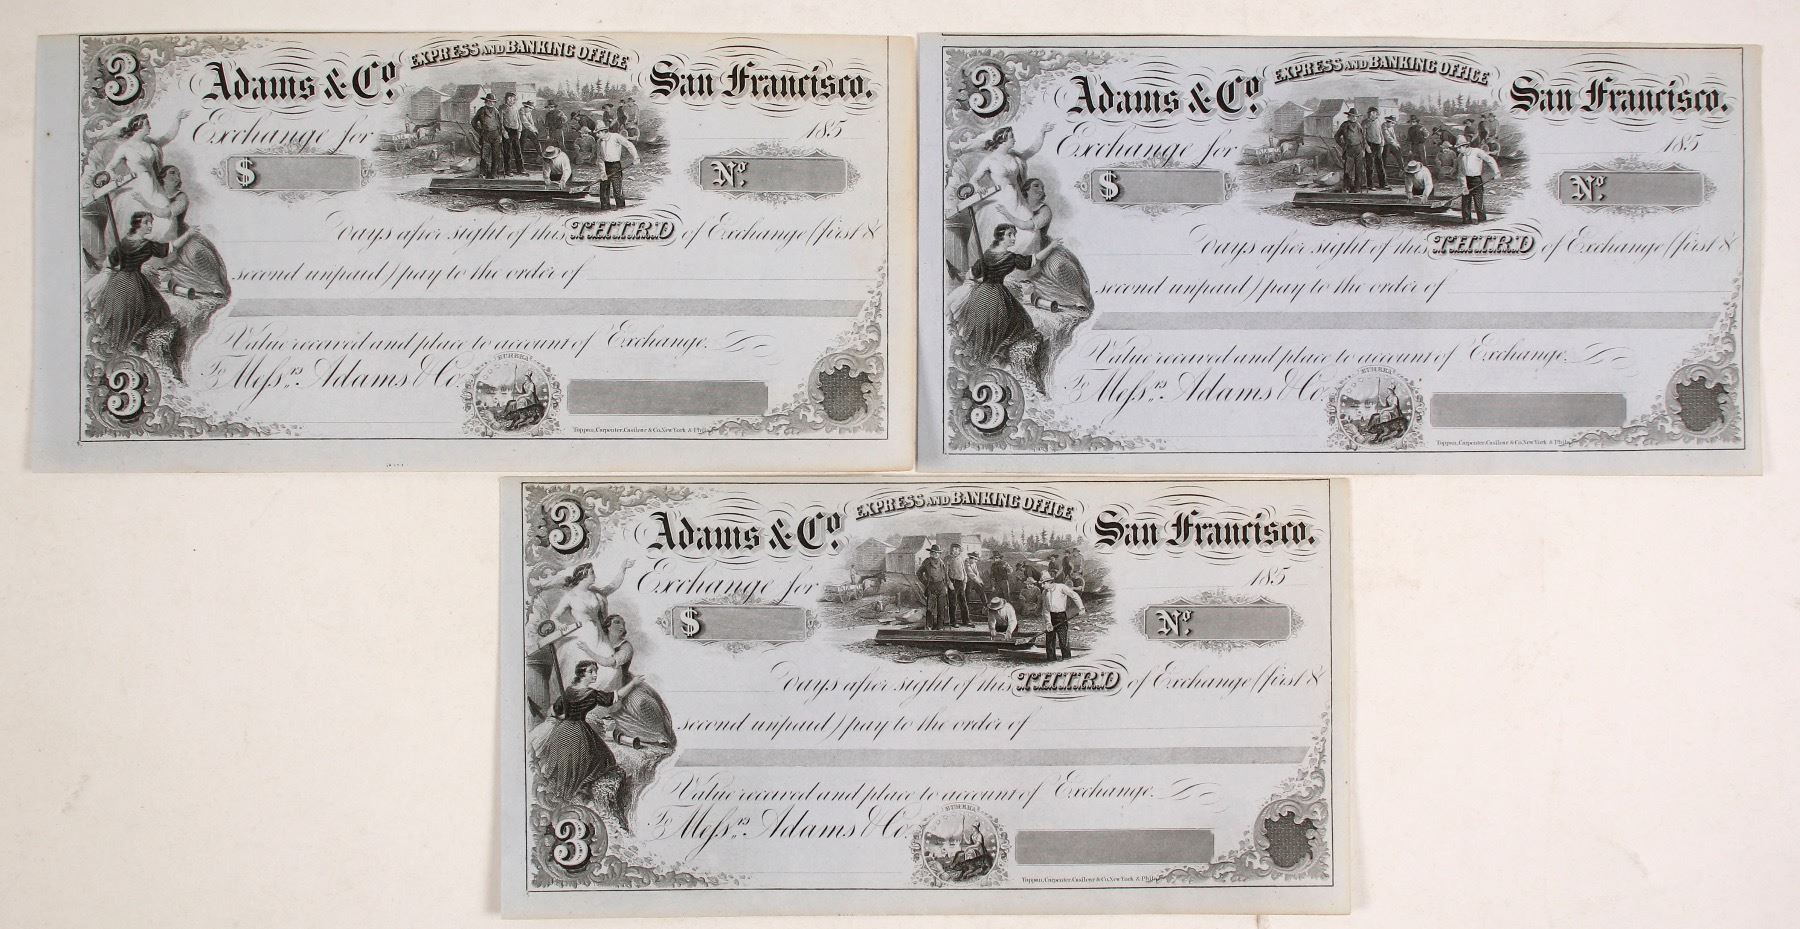 3
EXPRESS AND BANKING OFFICE
Adams & Co. San Francisco.
Exchange for 185
$ No.
Days after sight of this THIRD of Exchange (first &
second unpaid) pay to the order of
Value received and place to account of Exchange.
To Messrs. Adams & Co.
EUREKA
3
Toppan, Carpenter, Casilear & Co. New York & Phila.
3
EXPRESS AND BANKING OFFICE
Adams & Co. San Francisco.
Exchange for 185
$ No.
Days after sight of this THIRD of Exchange (first &
second unpaid) pay to the order of
Value received and place to account of Exchange.
To Messrs. Adams & Co.
EUREKA
3
Toppan, Carpenter, Casilear & Co. New York & Phila.
3
EXPRESS AND BANKING OFFICE
Adams & Co. San Francisco.
Exchange for 185
$ No.
Days after sight of this THIRD of Exchange (first &
second unpaid) pay to the order of
Value received and place to account of Exchange.
To Messrs. Adams & Co.
EUREKA
3
Toppan, Carpenter, Casilear & Co. New York & Phila.